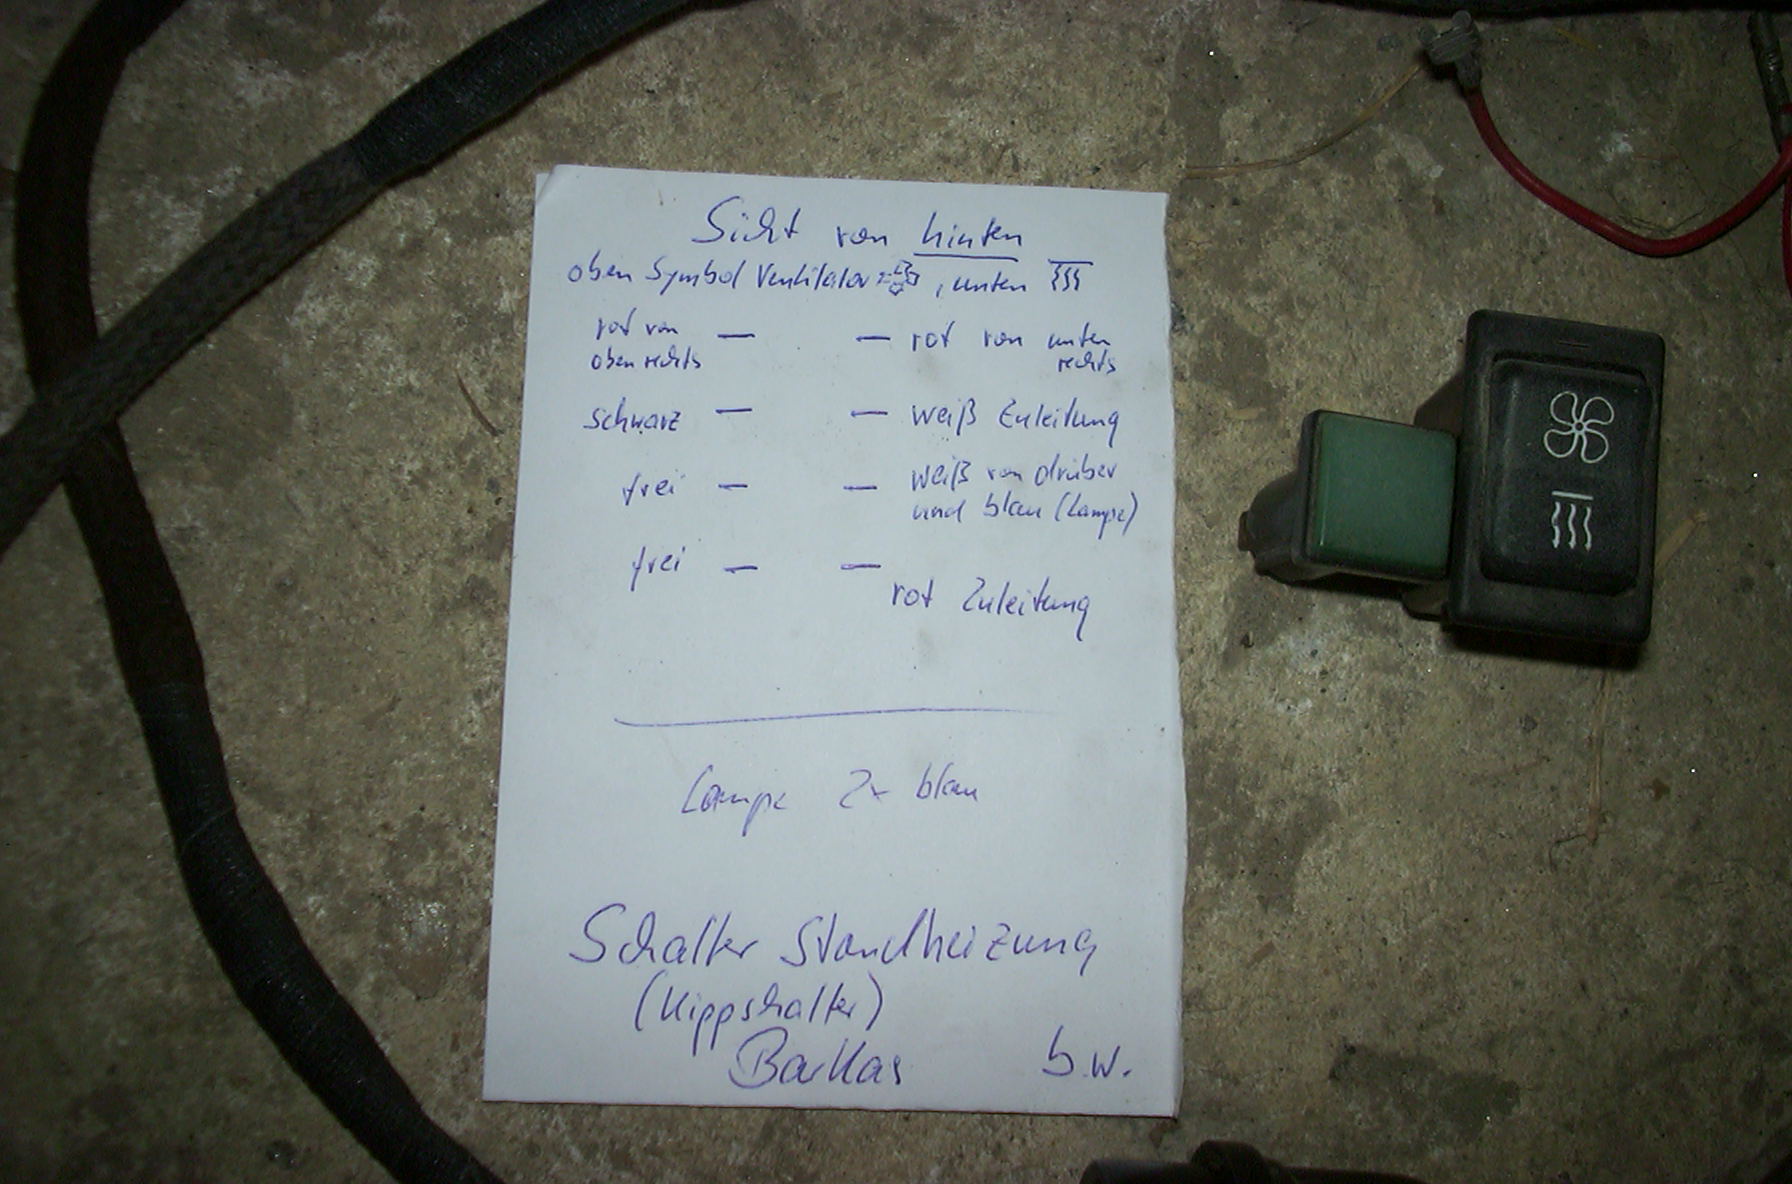 Sicht von hinten
oben Symbol Ventilator = , unten
rot von — — rot von unten
oben rechts rechts
schwarz — — weiß Zuleitung
frei — — weiß von drüber
und blau (Lampe)
frei — —
rot Zuleitung
Lampe 2x blau
Schalter Standheizung
(Kippschalter)
Barkas b.w.